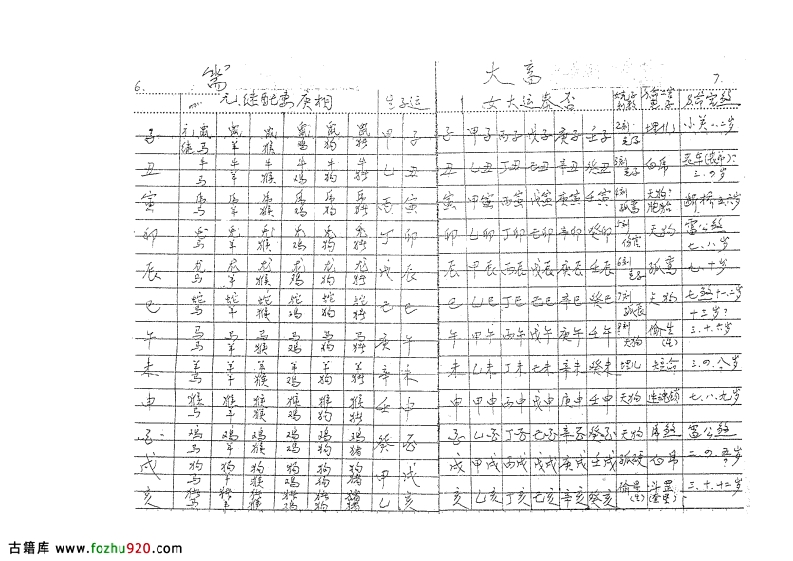 6. 篇 大富 7.
配 相 生子运 女大运泰否
子 鼠 鼠 鼠 鼠 鼠 鼠 甲子 子 甲子 丙子 戊子 庚子 壬子 小关 一二岁
马 羊 猴 鸡 狗 猪
丑 牛 牛 牛 牛 牛 牛 乙丑 丑 乙丑 丁丑 己丑 辛丑 癸丑 白虎
马 羊 猴 鸡 狗 猪 三、四岁
寅 虎 虎 虎 虎 虎 虎 丙寅 寅 甲寅 丙寅 戊寅 庚寅 壬寅 孤鸾 天狗
马 羊 猴 鸡 狗 猪
卯 兔 兔 兔 兔 兔 兔 丁卯 卯 乙卯 丁卯 己卯 辛卯 癸卯 天狗 雷公煞
马 羊 猴 鸡 狗 猪 七、八岁
辰 龙 龙 龙 龙 龙 龙 戊辰 辰 甲辰 丙辰 戊辰 庚辰 壬辰 孤鸾 七、十岁
马 羊 猴 鸡 狗 猪
巳 蛇 蛇 蛇 蛇 蛇 蛇 己巳 巳 乙巳 丁巳 己巳 辛巳 癸巳 孤辰 天狗
马 羊 猴 鸡 狗 猪 十三岁?
午 马 马 马 马 马 马 庚午 午 甲午 丙午 戊午 庚午 壬午 天狗 偷生 三、十六岁
马 羊 猴 鸡 狗 猪
未 羊 羊 羊 羊 羊 羊 辛未 未 乙未 丁未 己未 辛未 癸未 埋儿 短命 三、四、八岁
马 羊 猴 鸡 狗 猪
申 猴 猴 猴 猴 猴 猴 壬申 申 甲申 丙申 戊申 庚申 壬申 天狗 连魂锁 七、八、九岁
马 羊 猴 鸡 狗 猪
酉 鸡 鸡 鸡 鸡 鸡 鸡 癸酉 酉 乙酉 丁酉 己酉 辛酉 癸酉 天狗 雷公煞
马 羊 猴 鸡 狗 猪
戌 狗 狗 狗 狗 狗 狗 甲戌 戌 甲戌 丙戌 戊戌 庚戌 壬戌 白虎 二、四、五岁
马 羊 猴 鸡 狗 猪
亥 猪 猪 猪 猪 猪 猪 乙亥 亥 乙亥 丁亥 己亥 辛亥 癸亥 偷生 三、十、十二岁
马 羊 猴 鸡 狗 猪
古籍库 www.fozhu920.com